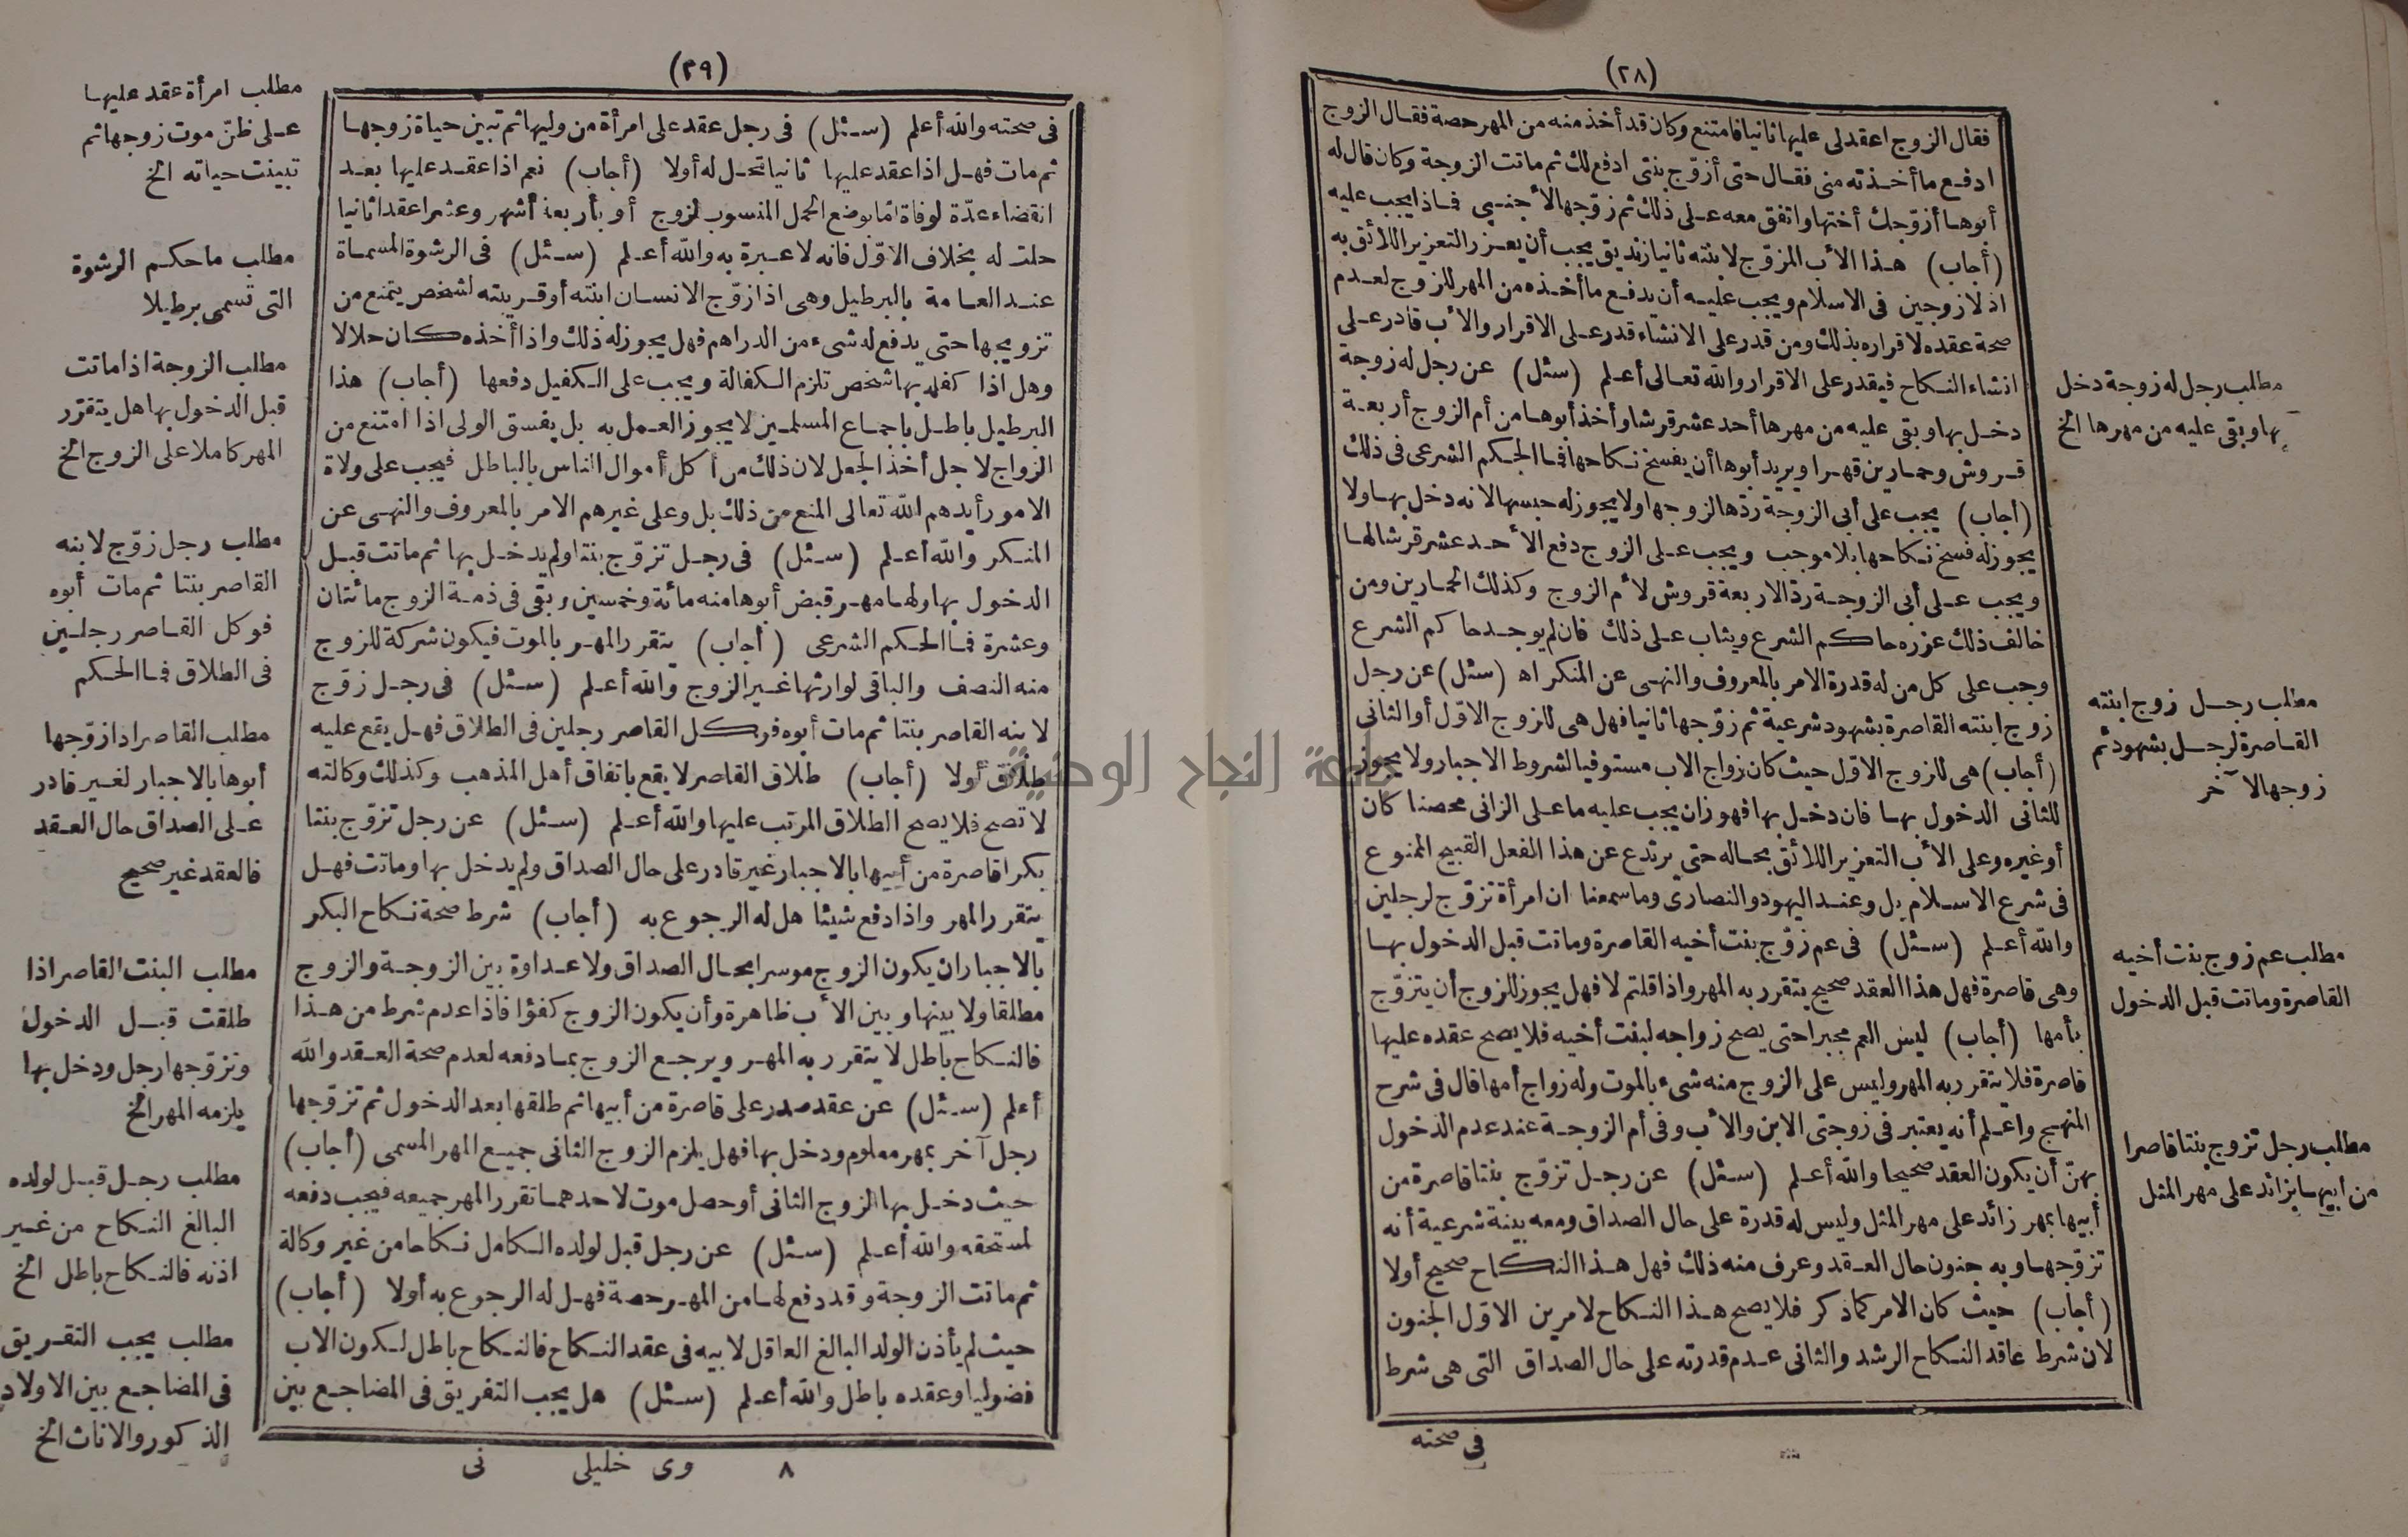 (٢٨)
فقال الزوج اعقد لى عليها ثانيا فامتنع وكان قد أخذ منه من المهر حصة فقال الزوج
ادفع ما أخذته منى فقال حتى أزوّج بنتى ادفع لك ثم ماتت الزوجة وكان قال له
أبوها أزوّجك أختها واتفق معه على ذلك ثم زوّجها لأجنبى فماذا يجب عليه
(أجاب) هذا الأب المزوّج لابنته ثانيا زنديق يجب أن يعزر التعزير اللائق به
اذ لا زوجين فى الاسلام ويجب عليه أن يدفع ما أخذه من المهر للزوج لعدم
صحة عقده لاقراره بذلك ومن قدر على الانشاء قدر على الاقرار والأب قادر على
انشاء النكاح فيقدر على الاقرار والله تعالى أعلم (سئل) عن رجل له زوجة
دخل بها وبقى عليه من مهرها أحد عشر قرشا وأخذ أبوها من أم الزوج أربعة
قروش وحمارين قهرا ويريد أبوها أن يفسخ نكاحها فما الحكم الشرعى فى ذلك
(أجاب) يجب على أبى الزوجة ردّها لزوجها ولا يجوز له حبسها لانه دخل بها ولا
يجوز له فسخ نكاحها بلا موجب ويجب على الزوج دفع الأحد عشر قرشا لها
ويجب على أبى الزوجة ردّ الاربعة قروش لأم الزوج وكذلك الحمارين ومن
خالف ذلك عزره حاكم الشرع ويثاب على ذلك فان لم يوجد حاكم الشرع
وجب على كل من له قدرة الامر بالمعروف والنهى عن المنكر اه (سئل) عن رجل
زوج ابنته القاصرة بشهود شرعية ثم زوّجها ثانيا فهل هى للزوج الاوّل أو الثانى
(أجاب) هى للزوج الاوّل حيث كان زواج الاب مستوفيا لشروط الاجبار ولا يجوز
للثانى الدخول بها فان دخل بها فهو زان يجب عليه ما على الزانى محصنا كان
أو غيره وعلى الأب التعزير اللائق بحاله حتى يرتدع عن هذا الفعل القبيح الممنوع
فى شرع الاسلام بل وعند اليهود والنصارى وما سمعنا ان امرأة تزوّج لرجلين
والله أعلم (سئل) فى عم زوّج بنت أخيه القاصرة وماتت قبل الدخول بها
وهى قاصرة فهل هذا العقد صحيح يتقرر به المهر واذا قلتم لا فهل يجوز للزوج أن يتزوّج
بأمها (أجاب) ليس العم مجبرا حتى يصح زواجه لبنت أخيه فلا يصح عقده عليها
قاصرة فلا يتقرر به المهر وليس على الزوج منه شىء بالموت وله زواج أمها قال فى شرح
المنهج واعلم أنه يعتبر فى زوجتى الابن والأب وفى أم الزوجة عند عدم الدخول
بهنّ أن يكون العقد صحيحا والله أعلم (سئل) عن رجل تزوّج بنتا قاصرة من
أبيها بمهر زائد على مهر المثل وليس له قدرة على حال الصداق ومعه بينة شرعية أنه
تزوّجها وبه جنون حال العقد وعرف منه ذلك فهل هذا النكاح صحيح أولا
(أجاب) حيث كان الامر كما ذكر فلا يصح هذا النكاح لامرين الاوّل الجنون
لان شرط عاقد النكاح الرشد والثانى عدم قدرته على حال الصداق التى هى شرط
فى صحته
مطلب رجل له زوجة دخل
بها وبقى عليه من مهرها الخ
مطلب رجل زوج ابنته
القاصرة لرجل بشهود ثم
زوجها لآخر
مطلب عم زوج بنت أخيه
القاصرة وماتت قبل الدخول
مطلب رجل تزوج بنتا قاصرا
من ابيها بزائد على مهر المثل
(٢٩)
فى صحته والله أعلم (سئل) فى رجل عقد على امرأة من وليها ثم تبين حياة زوجها
ثم مات فهل اذا عقد عليها ثانيا تحل له أولا (أجاب) نعم اذا عقد عليها بعد
انقضاء عدّة لوفاة اما بوضع الحمل المنسوب لزوج أو بأربعة أشهر وعشرا عقدا ثانيا
حلت له بخلاف الاوّل فانه لا عبرة به والله أعلم (سئل) فى الرشوة المسماة
عند العامة بالبرطيل وهى اذا زوّج الانسان ابنته أو قريبته لشخص يتمنع من
تزويجها حتى يدفع له شىء من الدراهم فهل يجوز له ذلك واذا أخذه كان حلالا
وهل اذا كفله بها شخص تلزم الكفالة ويجب على الكفيل دفعها (أجاب) هذا
البرطيل باطل باجماع المسلمين لا يجوز العمل به بل يفسق الولى اذا امتنع من
الزواج لاجل أخذ الجعل لان ذلك من أكل أموال الناس بالباطل فيجب على ولاة
الامور أيدهم الله تعالى المنع من ذلك بل وعلى غيرهم الامر بالمعروف والنهى عن
المنكر والله أعلم (سئل) فى رجل تزوّج بنتا ولم يدخل بها ثم ماتت قبل
الدخول بها ولها مهر قبض أبوها منه مائة وخمسين وبقى فى ذمة الزوج مائتان
وعشرة فما الحكم الشرعى (أجاب) يتقرر المهر بالموت فيكون شركة للزوج
منه النصف والباقى لوارثها غير الزوج والله أعلم (سئل) فى رجل زوّج
لابنه القاصر بنتا ثم مات أبوه فوكل القاصر رجلين فى الطلاق فهل يقع عليه
طلاق أولا (أجاب) طلاق القاصر لا يقع باتفاق أهل المذهب وكذلك وكالته
لا تصح فلا يصح الطلاق المرتب عليها والله أعلم (سئل) عن رجل تزوّج بنتا
بكرا قاصرة من أبيها بالاجبار غير قادر على حال الصداق ولم يدخل بها وماتت فهل
يتقرر المهر واذا دفع شيئا هل له الرجوع به (أجاب) شرط صحة نكاح البكر
بالاجبار ان يكون الزوج موسرا بحال الصداق ولا عداوة بين الزوجة والزوج
مطلقا ولا بينها وبين الأب ظاهرة وأن يكون الزوج كفؤا فاذا عدم شرط من هذا
فالنكاح باطل لا يتقرر به المهر ويرجع الزوج بما دفعه لعدم صحة العقد والله
أعلم (سئل) عن عقد صدر على قاصرة من أبيها ثم طلقها بعد الدخول ثم تزوّجها
رجل آخر بمهر معلوم ودخل بها فهل يلزم الزوج الثانى جميع المهر المسمى (أجاب)
حيث دخل بها الزوج الثانى أو حصل موت لاحدهما تقرر المهر جميعه فيجب دفعه
لمستحقه والله أعلم (سئل) عن رجل قبل لولده الكامل نكاحا من غير وكالة
ثم ماتت الزوجة وقد دفع لها من المهر حصة فهل له الرجوع به أولا (أجاب)
حيث لم يأذن الولد البالغ العاقل لابيه فى عقد النكاح فالنكاح باطل لكون الاب
فضوليا وعقده باطل والله أعلم (سئل) هل يجب التفريق فى المضاجع بين
٨ وى خليلى نى
مطلب امرأة عقد عليها
على ظنّ موت زوجها ثم
تبينت حياته الخ
مطلب ما حكم الرشوة
التى تسمى برطيلا
مطلب الزوجة اذا ماتت
قبل الدخول بها هل يتقرر
المهر كاملا على الزوج الخ
مطلب رجل زوّج لابنه
القاصر بنتا ثم مات أبوه
فوكل القاصر رجلين
فى الطلاق فما الحكم
مطلب القاصر اذا زوّجها
أبوها بالاجبار لغير قادر
على الصداق حال العقد
فالعقد غير صحيح
مطلب البنت القاصر اذا
طلقت قبل الدخول
وتزوّجها رجل ودخل بها
يلزمه المهر الخ
مطلب رجل قبل لولده
البالغ النكاح من غير
اذنه فالنكاح باطل الخ
مطلب يجب التفريق
فى المضاجع بين الاولاد
الذكور والاناث الخ
جامعة النجاح الوطنية